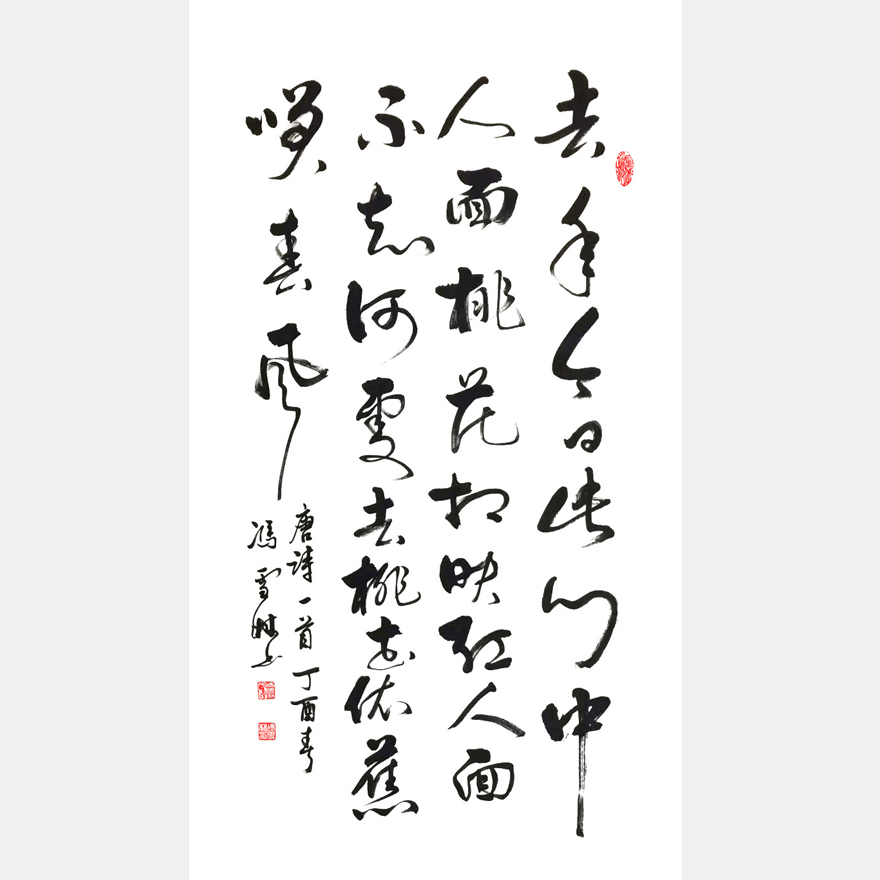 去年今日此门中
人面桃花相映红人面
不知何處去桃花依舊
咲春风
唐诗一首丁酉春
馮雪书